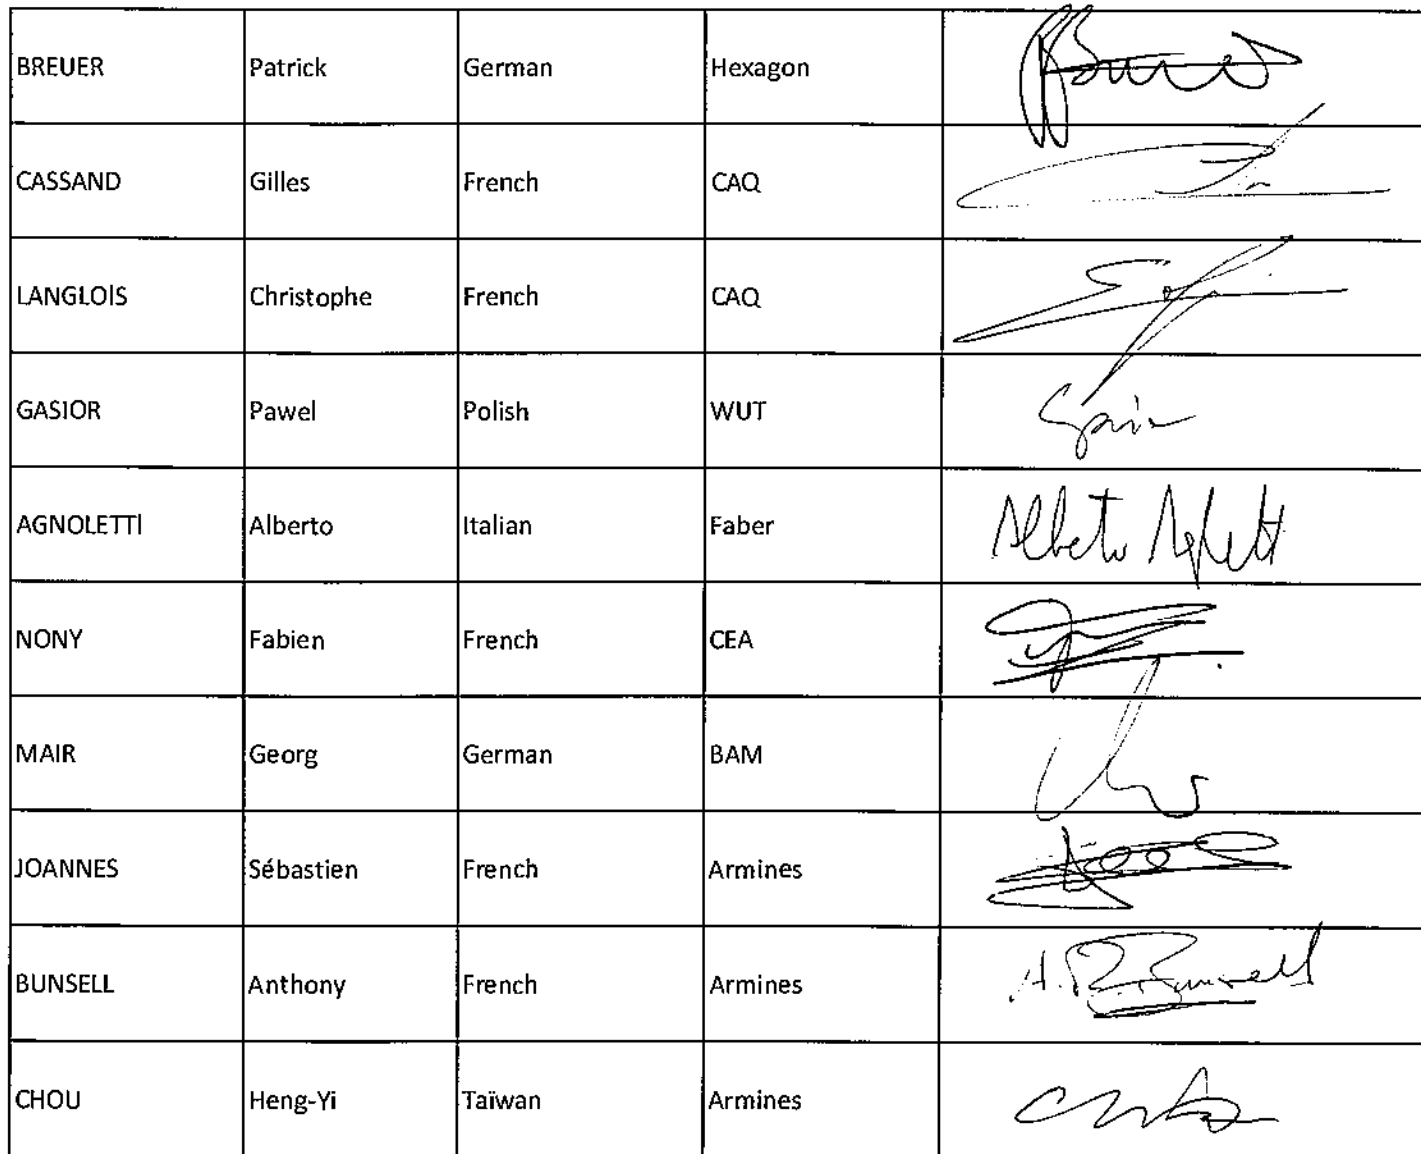 BREUER Patrick German Hexagon
CASSAND Gilles French CAQ
LANGLOIS Christophe French CAQ
GASIOR Pawel Polish WUT
AGNOLETTI Alberto Italian Faber Alberto
NONY Fabien French CEA
MAIR Georg German BAM
JOANNES Sébastien French Armines
BUNSELL Anthony French Armines A.R. Bunsell
CHOU Heng-Yi Taïwan Armines